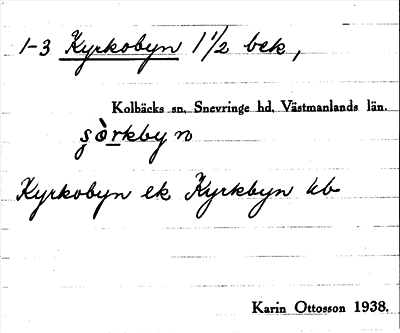 1-3 Kyrkobyn 1 1/2 bek,
Kolbäcks sn, Snevringe hd, Västmanlands län.
Kyrkobyn ek Kyrkbyn kb
Karin Ottosson 1938.